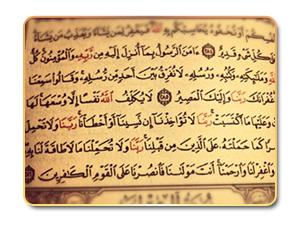 أَنفُسِكُمْ أَوْ تُخْفُوهُ يُحَاسِبْكُم بِهِ اللَّهُ فَيَغْفِرُ لِمَن يَشَاءُ وَيُعَذِّبُ مَن يَشَاءُ
وَاللَّهُ عَلَىٰ كُلِّ شَىْءٍ قَدِيرٌ ﴿٢٨٤﴾ ءَامَنَ الرَّسُولُ بِمَا أُنزِلَ إِلَيْهِ مِن رَّبِّهِ وَالْمُؤْمِنُونَ كُلٌّ
ءَامَنَ بِاللَّهِ وَمَلَٰئِكَتِهِ وَكُتُبِهِ وَرُسُلِهِ لَا نُفَرِّقُ بَيْنَ أَحَدٍ مِّن رُّسُلِهِ وَقَالُوا سَمِعْنَا
غُفْرَانَكَ رَبَّنَا وَإِلَيْكَ الْمَصِيرُ ﴿٢٨٥﴾ لَا يُكَلِّفُ اللَّهُ نَفْسًا إِلَّا وُسْعَهَا لَهَا
وَعَلَيْهَا مَا اكْتَسَبَتْ رَبَّنَا لَا تُؤَاخِذْنَا إِن نَّسِينَا أَوْ أَخْطَأْنَا رَبَّنَا وَلَا تَحْمِلْ
كَمَا حَمَلْتَهُ عَلَى الَّذِينَ مِن قَبْلِنَا رَبَّنَا وَلَا تُحَمِّلْنَا مَا لَا طَاقَةَ لَنَا بِهِ
وَاغْفِرْ لَنَا وَارْحَمْنَا أَنتَ مَوْلَىٰنَا فَانصُرْنَا عَلَى الْقَوْمِ الْكَٰفِرِينَ ﴿٢٨٦﴾